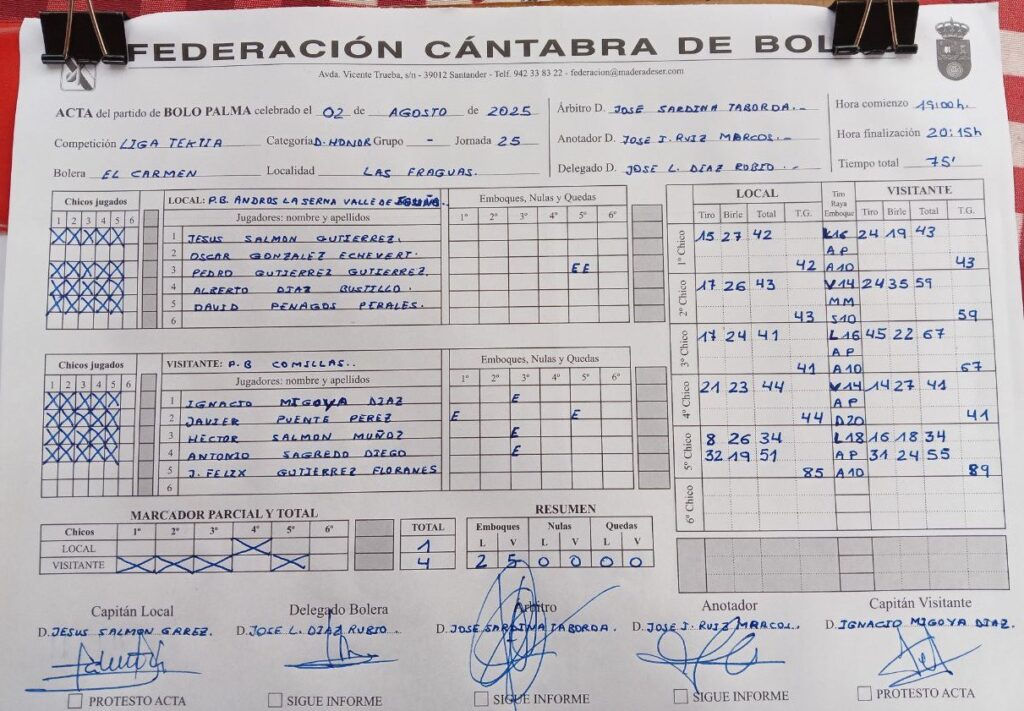 FEDERACIÓN CÁNTABRA DE BOL
Avda. Vicente Trueba, s/n - 39012 Santander - Telf. 942 33 83 22 - federacion@maderadeser.com
ACTA del partido de BOLO PALMA celebrado el 02 de AGOSTO de 2025
Competición LIGA TEKTIA Categoría D. HONOR Grupo - Jornada 25
Bolera EL CARMEN Localidad LAS FRAGUAS.
Árbitro D. JOSE SARDINA TABORDA.-
Anotador D. JOSE J. RUIZ MARCOS.-
Delegado D. JOSE L. DIAZ RUBIO.-
Hora comienzo 19:00 h.
Hora finalización 20:15h
Tiempo total 75'
Chicos jugados
1 2 3 4 5 6
LOCAL: P.B. ANDROS LA SERNA VALLE DE
Jugadores: nombre y apellidos
Emboques, Nulas y Quedas
1º 2º 3º 4º 5º 6º
1 JESUS SALMON GUTIERREZ.
2 OSCAR GONZALEZ ECHEVERT.
3 PEDRO GUTIERREZ GUTIERREZ. EE
4 ALBERTO DIAZ BUSTILLO.
5 DAVID PENAGOS PERALES.
6
Chicos jugados
1 2 3 4 5 6
VISITANTE: P.B COMILLAS..
Jugadores: nombre y apellidos
Emboques, Nulas y Quedas
1º 2º 3º 4º 5º 6º
1 IGNACIO MIGOYA DIAZ E
2 JAVIER PUENTE PEREZ E E
3 HECTOR SALMON MUÑOZ E
4 ANTONIO SAGREDO DIEGO E
5 J. FELIX GUTIERREZ FLORANES
6
LOCAL Tiro Raya Emboque VISITANTE
Tiro Birle Total T.G. Tiro Birle Total T.G.
1º Chico 15 27 42 L16 24 19 43
AP
42 A10 43
2º Chico 17 26 43 V14 24 35 59
MM
43 S10 59
3º Chico 17 24 41 L16 45 22 67
AP
41 A10 67
4º Chico 21 23 44 V14 14 27 41
AP
44 D20 41
5º Chico 8 26 34 L18 16 18 34
32 19 51 AP 31 24 55
85 A10 89
6º Chico
MARCADOR PARCIAL Y TOTAL
Chicos 1º 2º 3º 4º 5º 6º TOTAL
LOCAL X 1
VISITANTE X X X X 4
RESUMEN
Emboques Nulas Quedas
L V L V L V
2 5 0 0 0 0
Capitán Local Delegado Bolera Árbitro Anotador Capitán Visitante
D. JESUS SALMON D. JOSE L. DIAZ RUBIO. D. JOSE SARDINA TABORDA. D. JOSE J. RUIZ MARCOS. D. IGNACIO MIGOYA DIAZ.
PROTESTO ACTA SIGUE INFORME SIGUE INFORME SIGUE INFORME PROTESTO ACTA